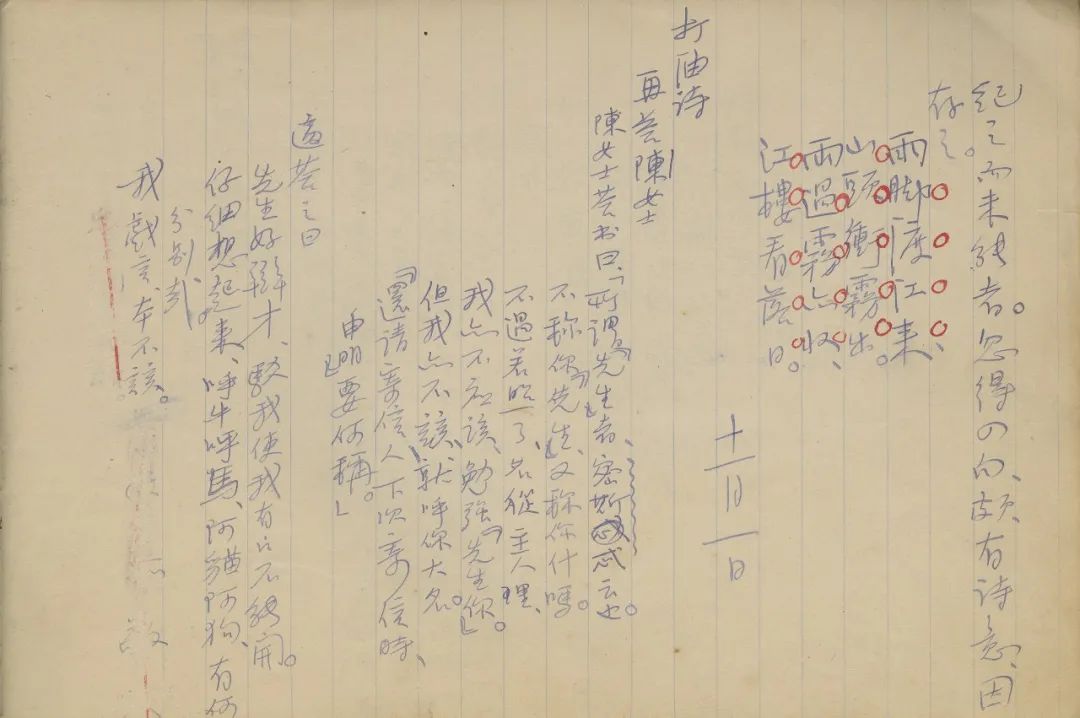 紀之而未能者。忽得四句、頗有詩意、因
存之。
雨脚渡江来、
山頭衝霧出。
雨過霧亦收、
江樓看落日。
十一月一日
打油诗
再答陳女士
陳女士答书曰、「所謂『先生』者、密斯忒云也。
不称你『先生』、又称你什嗎。
不過若照「名從主人」理、
我亦不應該、勉強『先生』你。
但我亦不該、就呼你大名。
「還請寄信人、下次寄信時、
申明要何稱。」
適答之曰
先生好辯才、駁我使我有口不能開。
仔細想起来、呼牛呼馬、阿貓阿狗、有何
分别哉
我戲言、本不該。